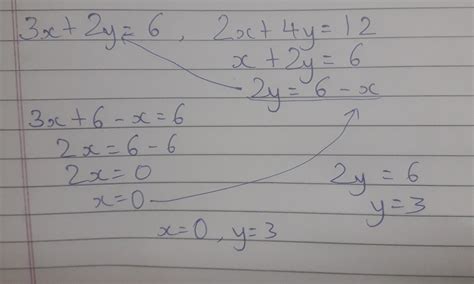 3x+2y=6, 2x+4y=12
x+2y=6
2y=6-x
3x+6-x=6
2x=6-6
2x=0
x=0
2y=6
y=3
x=0, y=3